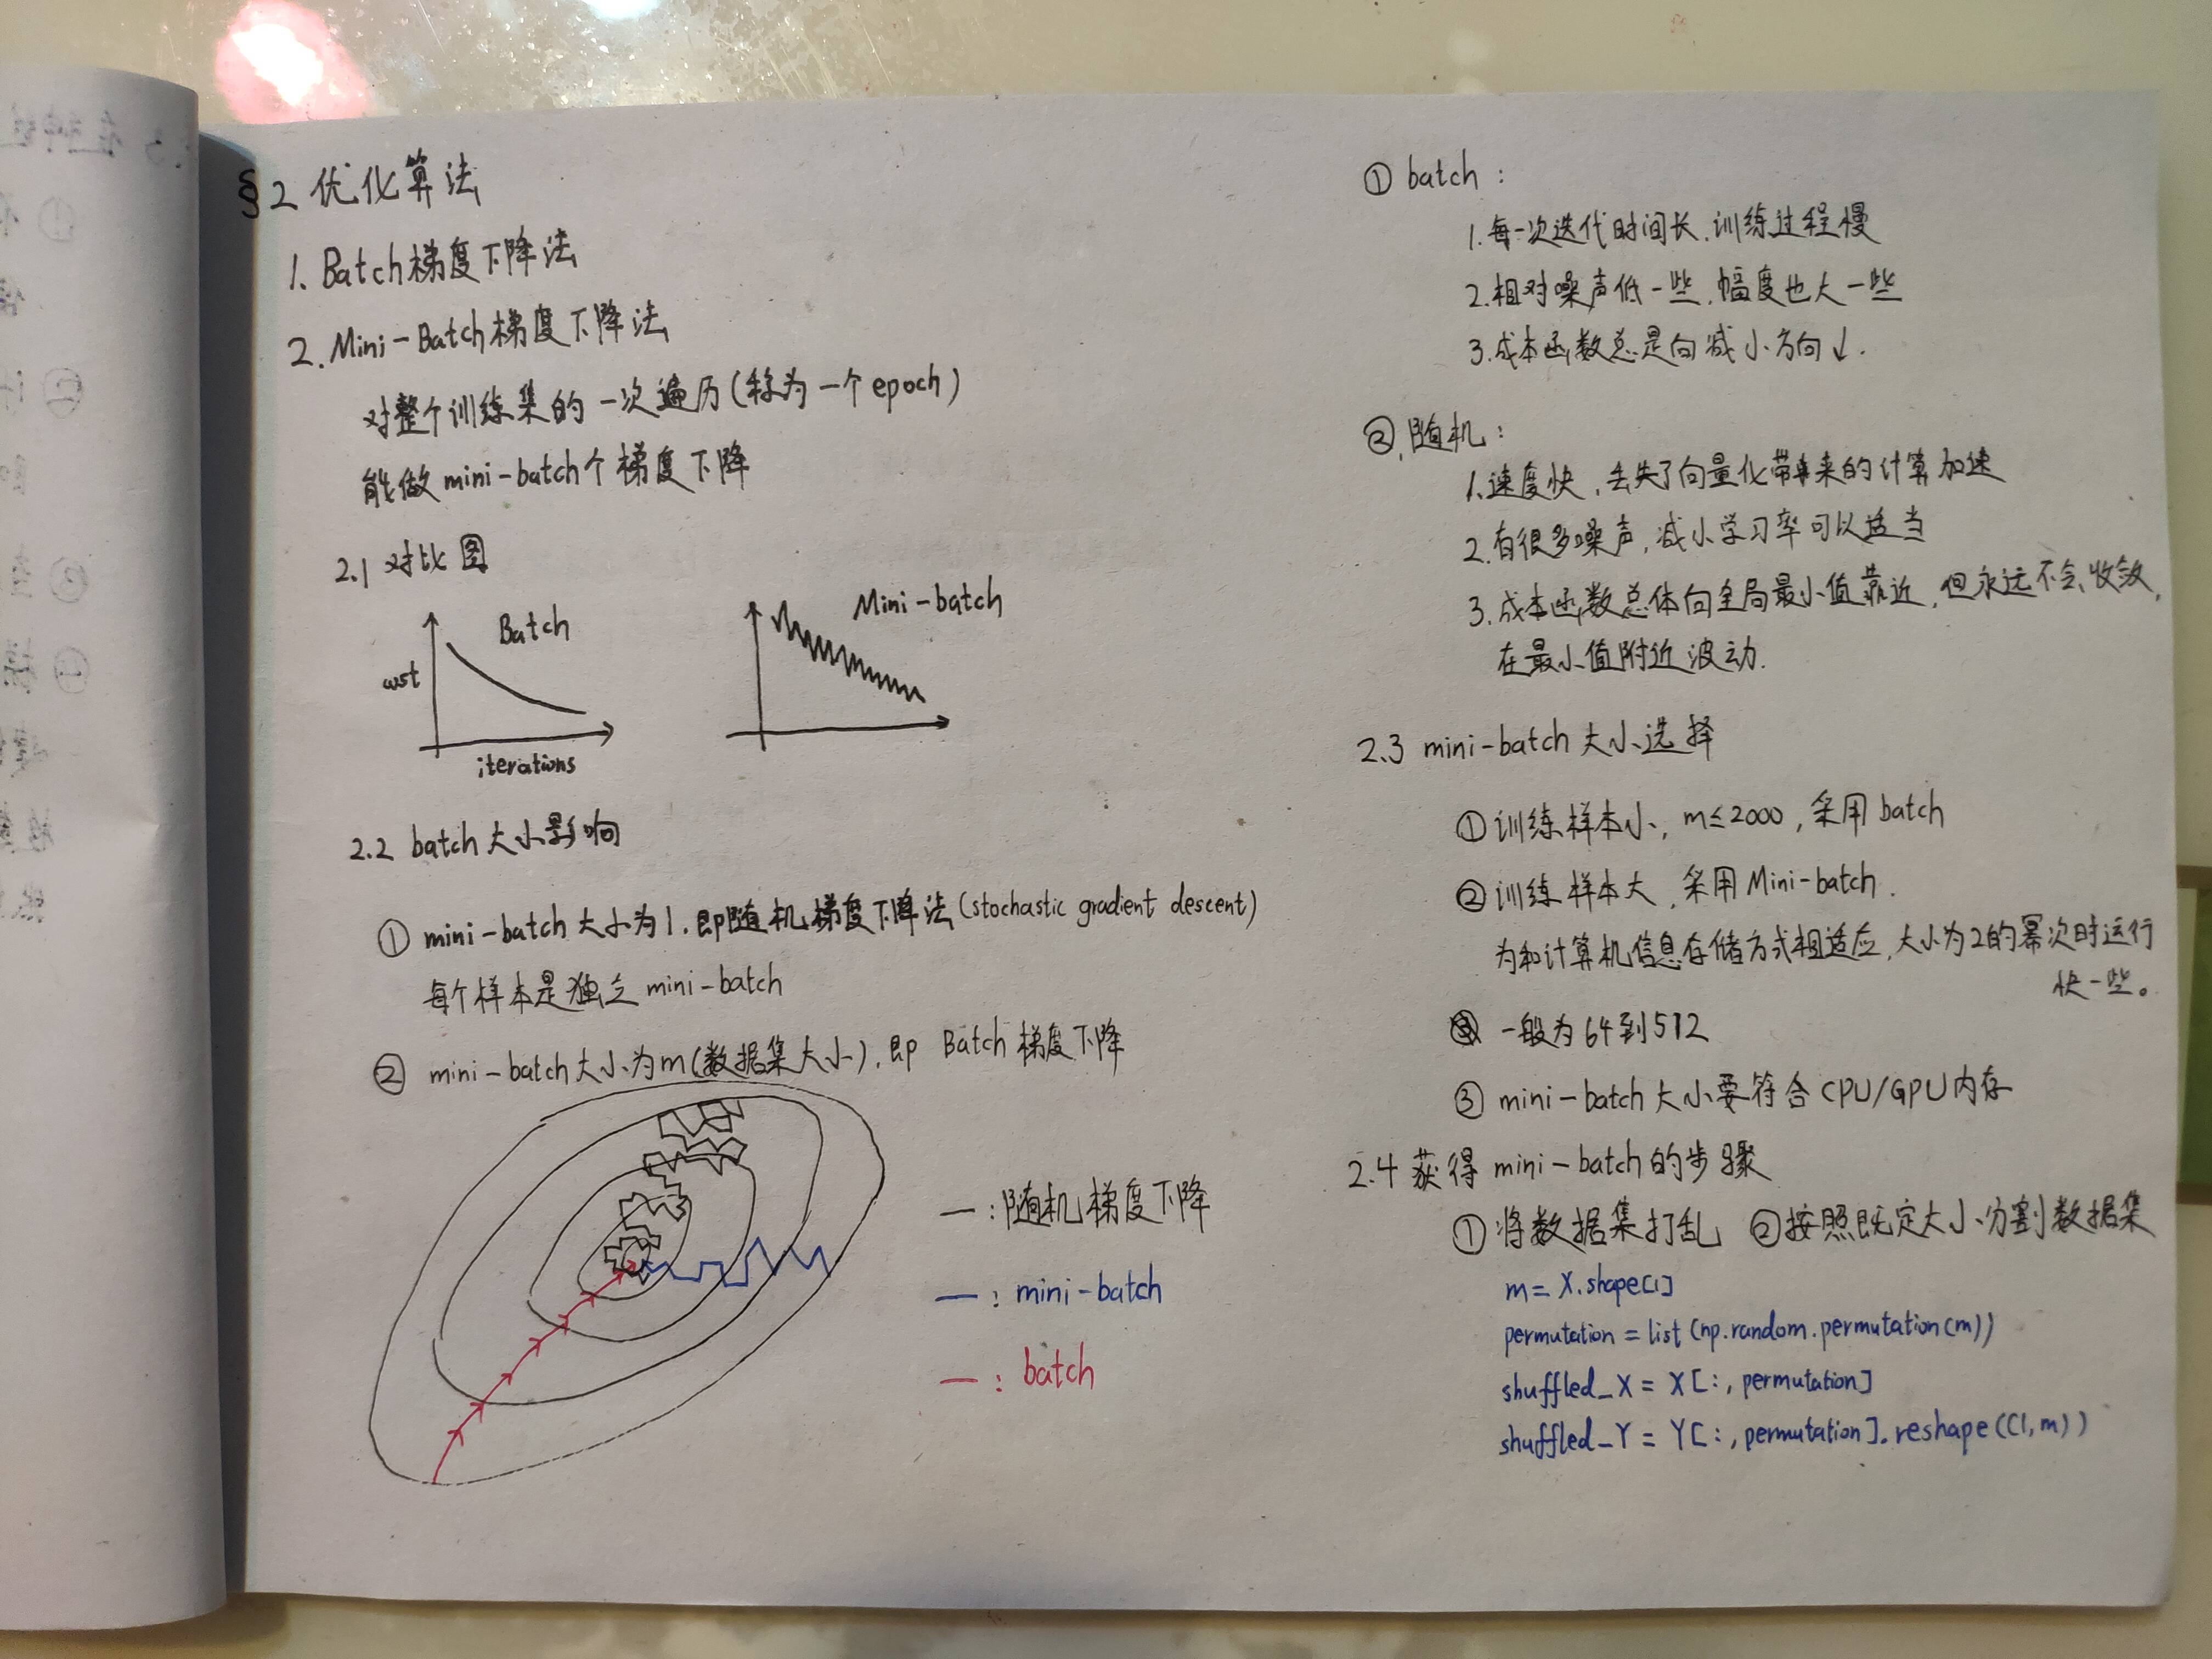 §2 优化算法
1. Batch梯度下降法
2. Mini-Batch梯度下降法
对整个训练集的一次遍历(称为一个epoch)
能做mini-batch个梯度下降
2.1 对比图
Batch
cost
iterations
Mini-batch
2.2 batch大小影响
① mini-batch大小为1.即随机梯度下降法(stochastic gradient descent)
每个样本是独立mini-batch
② mini-batch大小为m(数据集大小).即 Batch梯度下降
—:随机梯度下降
—: mini-batch
—: batch
① batch:
1.每一次迭代时间长.训练过程慢
2.相对噪声低一些.幅度也大一些
3.成本函数总是向减小方向↓.
②.随机:
1.速度快,丢失了向量化带来的计算加速
2.有很多噪声,减小学习率可以适当
3.成本函数总体向全局最小值靠近,但永远不会收敛,
在最小值附近波动.
2.3 mini-batch大小选择
①训练样本小, m≤2000, 采用batch
②训练样本大,采用Mini-batch.
为和计算机信息存储方式相适应,大小为2的幂次时运行
快一些。
一般为64到512
③ mini-batch大小要符合CPU/GPU内存
2.4 获得mini-batch的步骤
①将数据集打乱 ②按照既定大小分割数据集
m= X.shape[1]
permutation = list(np.random.permutation(m))
shuffled_X = X[:,permutation]
shuffled_Y = Y[:,permutation].reshape((1,m))